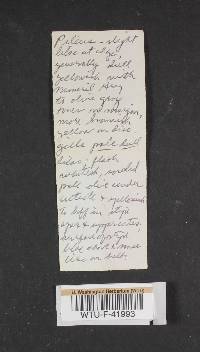 Pileus – slight
lilac at edge,
generally dull
yellowish with
mineral gray
to olive gray
over margin,
more brownish
yellow on disc
Gills pale dull
lilac; flesh
whitish, sordid
pale olive under
cuticle & yellowish
to buff in stipe
apex &
blue above & more
lilac on bulb.
U. Washington Herbarium (WTU)
WTU-F-41993